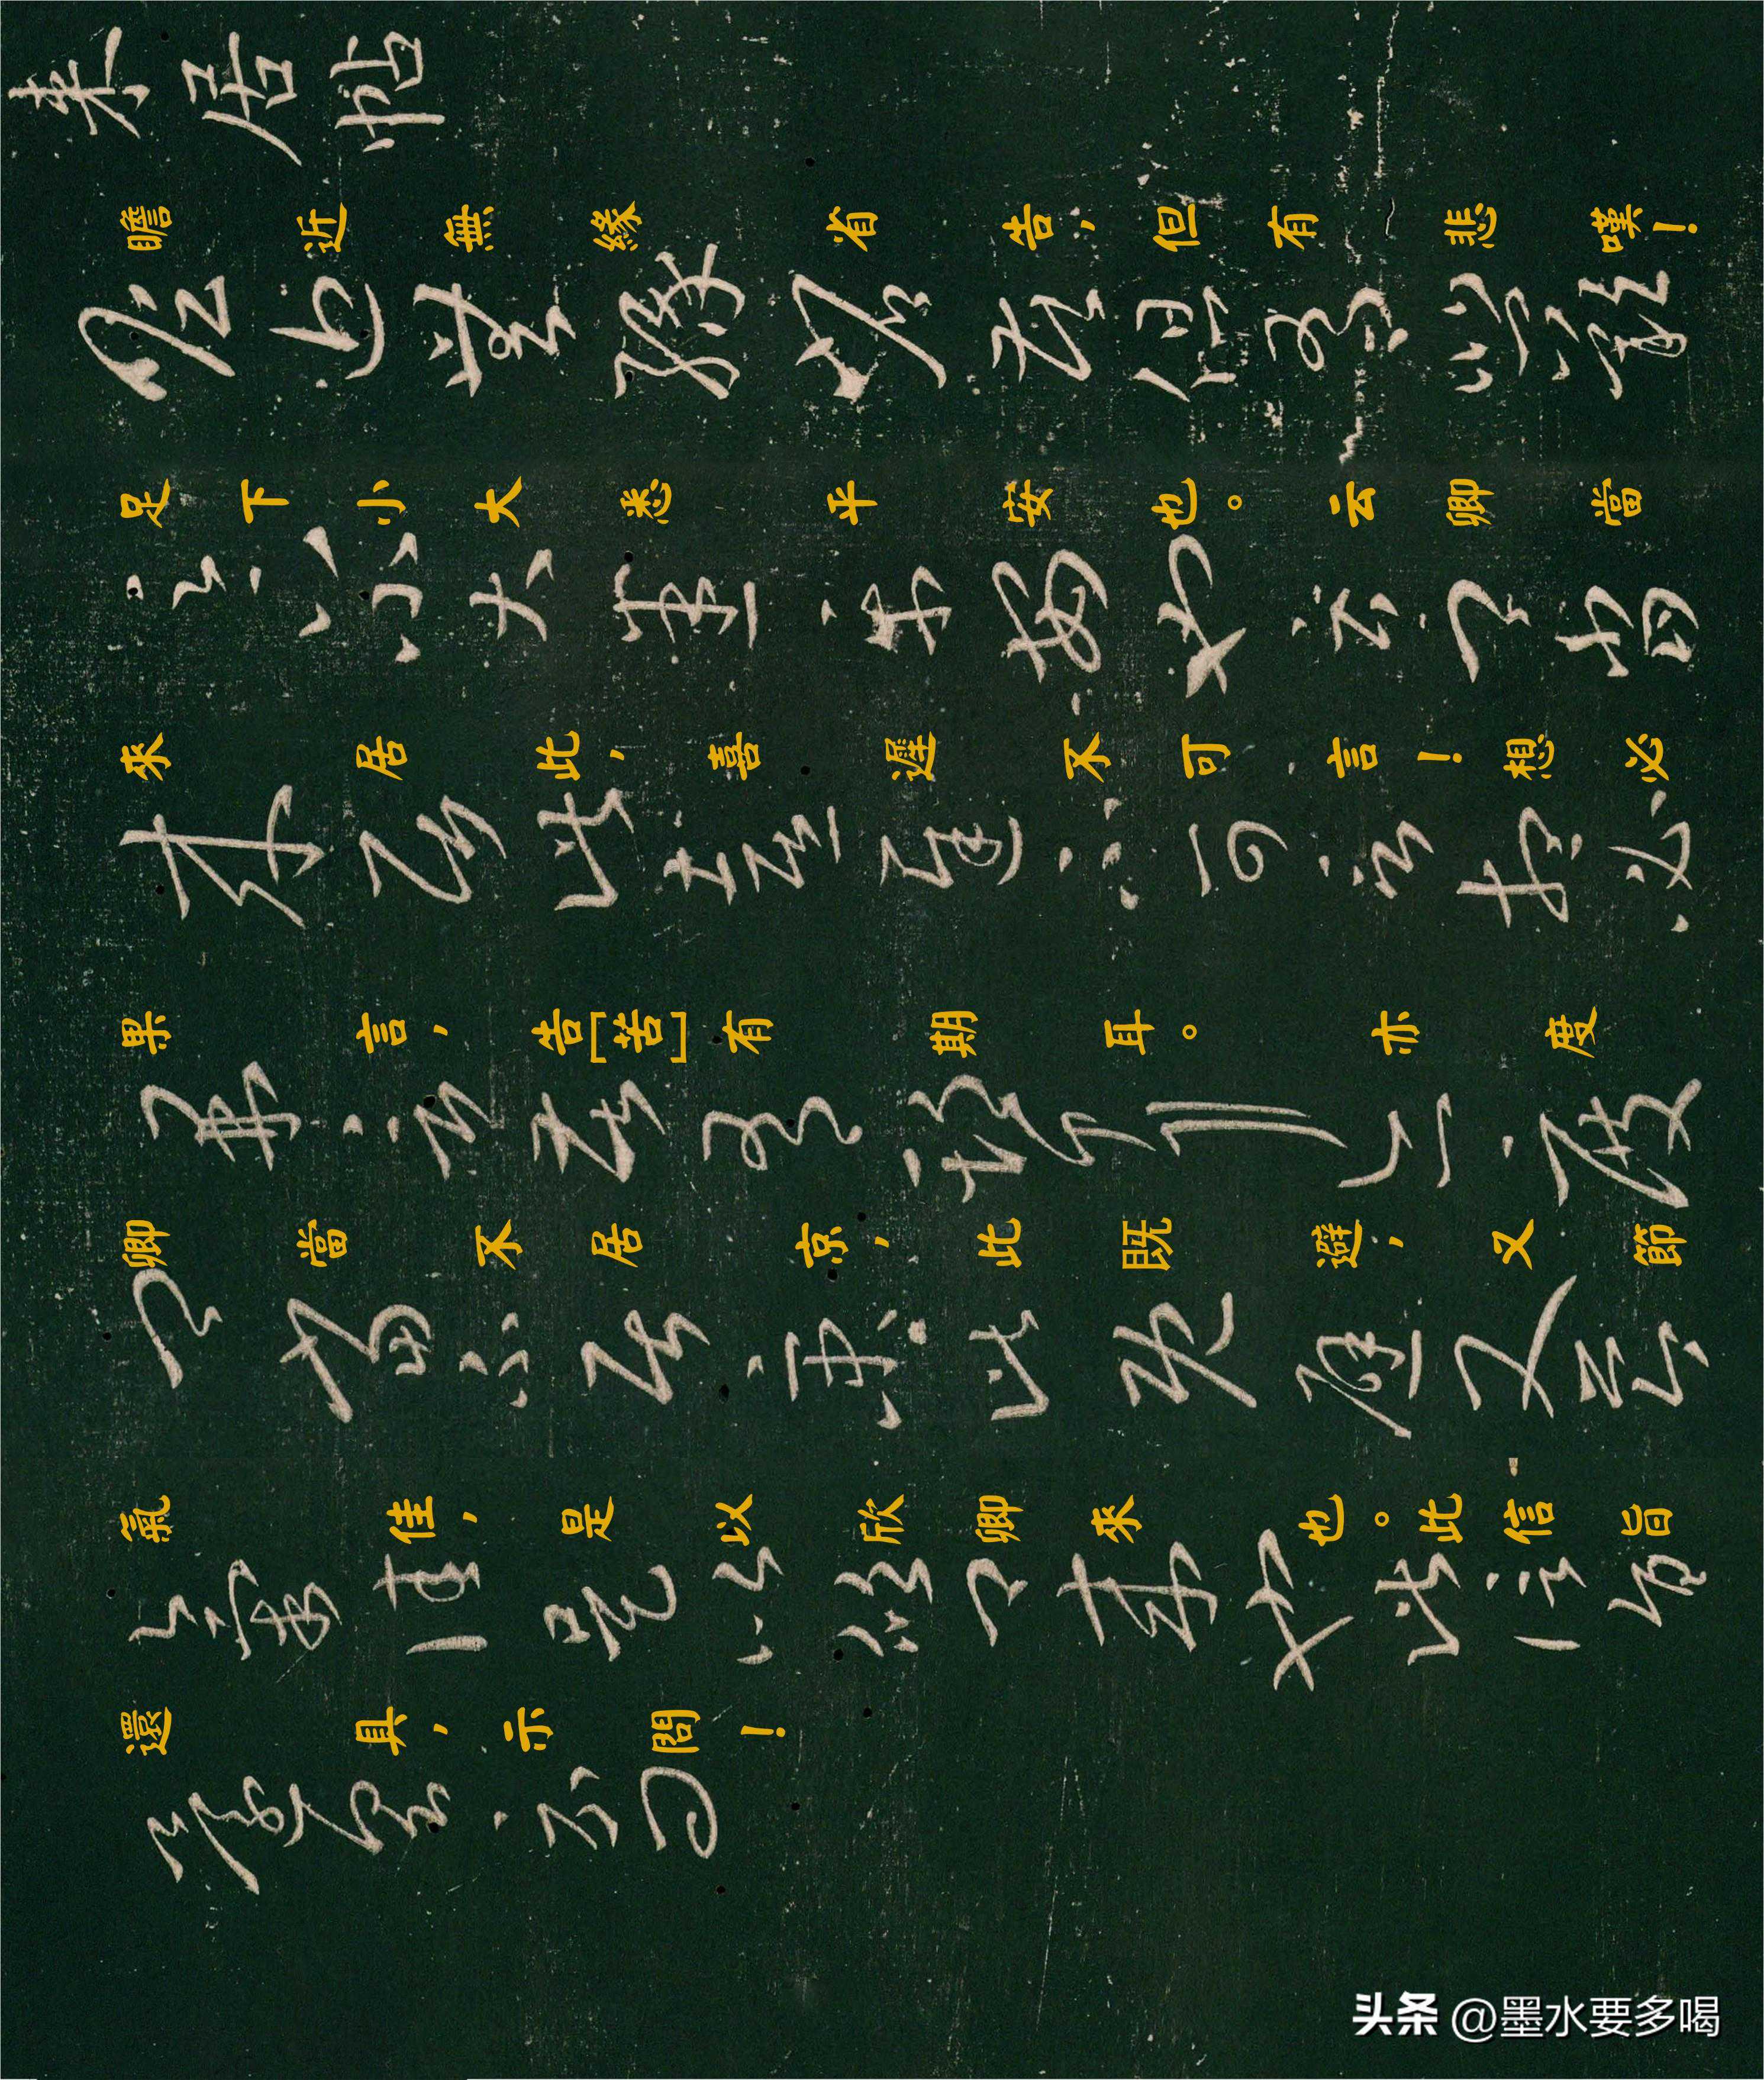 來居帖
瞻近無緣省告，但有悲嘆！
足下小大悉平安也。云卿當
來居此，喜遲不可言！想必
果言，告[苦]有期耳。亦度
卿當不居京，此既避，又節
氣佳，是以欣卿來也。此信旨
還具，示問！
头条 @墨水要多喝